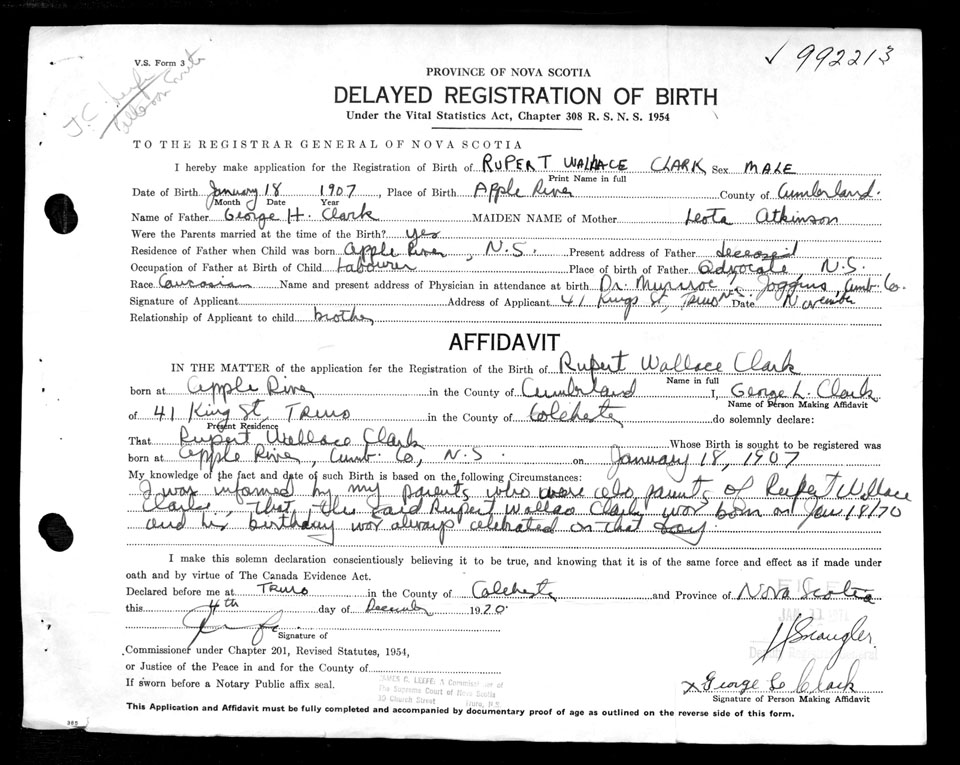 V.S. Form 3
J.C.
✓ 992213
PROVINCE OF NOVA SCOTIA
DELAYED REGISTRATION OF BIRTH
Under the Vital Statistics Act, Chapter 308 R. S. N. S. 1954
TO THE REGISTRAR GENERAL OF NOVA SCOTIA
I hereby make application for the Registration of Birth of RUPERT WALLACE CLARK Sex MALE
Print Name in full
Date of Birth January 18 1907, Place of Birth Apple River County of Cumberland.
Month Date Year
Name of Father George H. Clark MAIDEN NAME of Mother Leota Atkinson
Were the Parents married at the time of the Birth? yes
Residence of Father when Child was born Apple River, N.S. Present address of Father deceased
Occupation of Father at Birth of Child Labourer Place of birth of Father Advocate, N.S.
Race Caucasian Name and present address of Physician in attendance at birth Dr. Munroe, Joggins, Cumb. Co.
Signature of Applicant Address of Applicant 41 Kings St, Truro N.S. Date November
Relationship of Applicant to child brother
AFFIDAVIT
IN THE MATTER of the application for the Registration of the Birth of Rupert Wallace Clark
Name in full
born at Apple River in the County of Cumberland I, George L. Clark
Name of Person Making Affidavit
of 41 King St, Truro in the County of Colchester do solemnly declare:
Present Residence
That Rupert Wallace Clark Whose Birth is sought to be registered was
born at Apple River, Cumb. Co., N.S. on January 18, 1907
My knowledge of the fact and date of such Birth is based on the following Circumstances:
I was informed by my parents who were also parents of Rupert Wallace
Clark, that the said Rupert Wallace Clark was born on Jan 18/70
and his birthday was always celebrated on that day
I make this solemn declaration conscientiously believing it to be true, and knowing that it is of the same force and effect as if made under
oath and by virtue of The Canada Evidence Act.
Declared before me at Truro in the County of Colchester and Province of Nova Scotia
this 4th day of December 1970
Signature of
Commissioner under Chapter 201, Revised Statutes, 1954,
or Justice of the Peace in and for the County of
If sworn before a Notary Public affix seal.
JAMES C. LEEFE A Commissioner of
The Supreme Court of Nova Scotia
35 Church Street Truro, N.S.
x George L Clark
Signature of Person Making Affidavit
This Application and Affidavit must be fully completed and accompanied by documentary proof of age as outlined on the reverse side of this form.